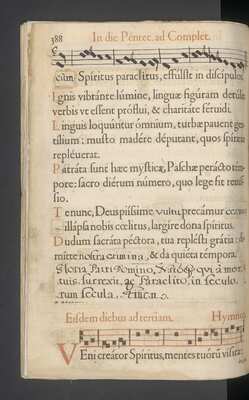 388 In die Pentec. ad Complet.
cùm Spiritus paraclitus, effulsit in discipulos
Ignis vibránte lúmine, linguæ figúram detúlit
verbis vt essent próflui, & charitáte féruidi.
Linguis loquúntur ómnium, turbæ pauent gen-
tílium: musto madére députant, quos spíritus
repléuerat.
Patráta sunt hæc mysticè, Paschæ perácto tém-
pore: sacro diérum número, quo lege fit remís-
sio.
Te nunc, Deus piíssime vultu precámur
illápsa nobis cœlitus, largíre dona spíritus.
Dudum sacráta péctora, tua replésti grátia: di-
mitte nostra crimina, & da quiéta témpora.
Gloria Patri Domino, Natoque, qui à mor-
tuis surrexit, ac Paraclito, in sæculo-
rum sæcula. Amen.
Eisdem diebus ad tertiam. Hymnus
VEni creátor Spíritus, mentes tuórũ vísita: